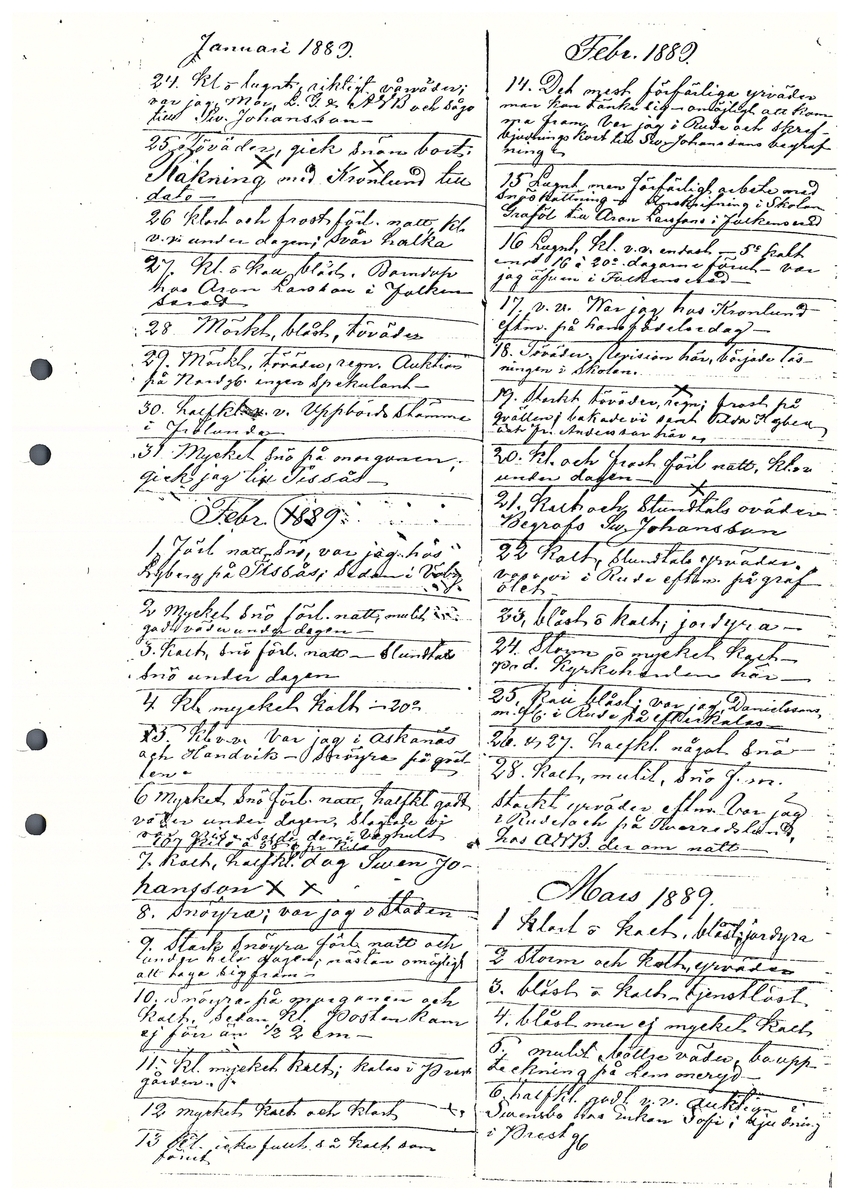 Januari 1889.
24. Kl. o lugnt, riktigt vårväder;
var jag, Mor, L. G. & A.M.B och såg
till Sv. Johansson—
25. Töväder, gick snön bort.
Räkning med Kronlund till
dato—
26 Klart och frost förl. natt, kl.
v.v. under dagen; svår halka
27. Kl. o kall blåst. Barndop
hos Aron Larsson i Falken-
sered
28. Mörkt, blåst, töväder
29. Mörkt, töväder, regn. Auktion
på ingen spekulant—
30. halfkl. v. v. Uppbördsstämma
i
31. Mycket snö på morgonen,
gick jag till Tissås
Febr. 1889.
1 Förl. natt snö, var jag hos
Ryberg på Tissås; sedan i
2 Mycket snö förl. natt, mulit
godt väder under dagen—
3. Kallt, snö förl. natt— stundtals
snö under dagen
4 Kl. mycket kallt — 20°
5. Kl. v.v. var jag i Askanäs
och Handvik— Snöyra på qväl-
len
6 Mycket snö förl. natt, halfkl. godt
väder under dagen, slagtade vi
vår gris, sålde den i Väghult
107 kilo à 58 öre pr kilo
7. Kallt, halfkl. dog Swen Jo-
hansson X X
8. Snöyra; var jag i Staden
9. Stark snöyra förl. natt och
under hela dagen; nästan omöjligt
att taga sig fram—
10. Snöyra på morgonen och
kallt, sedan kl. Posten kom
ej förr än ½ 2 em—
11. Kl. mycket kallt; kalas i Prest-
gården
12 mycket kallt och klart
13 Kl. icke fullt så kallt som
förut
Febr. 1889.
14. Det mest förfärliga yrväder
man kan tänka sig— omöjligt att kom-
ma fram. Var jag i Rude och skref
bjudningskort till Sv. Johanssons begraf-
ning
15 Lugnt men förfärligt arbete med
snöskottning— Inskrifning i Skolan
Graföl till Aron Larssons i Falkensered
16 Lugnt, kl. v.v. endast — 5° kallt
emot 16 à 20° dagarne förut— var
jag äfven i Falkensered—
17. v. v. War jag hos Kronlund
eftm. på hans födelsedag—
18. Töväder, Revision här, började läs-
ningen i Skolan.
19. Starkt töväder, regn; frost på
qvällen; bakade vi samt Tilda Nyberg
Andersson här
20. Kl. och frost förl. natt, kl. v
under dagen—
21. Kallt och stundtals oväder
Begrofs Sw. Johansson
22 Kallt, stundtals yrväder.
voro vi i Rude eftm. på graf-
ölet—
23. blåst o kallt; jordyra—
24. Storm o mycket kallt—
Pred. Kyrkoherden här—
25. Kall blåst; var jag, Danielssons,
m. fl. i Rude på efterkalas—
26. & 27. halfkl. något snö—
28. Kallt, mulit, snö f.m.
starkt yrväder eftm. Var jag
i Rude och på
hos A.M.B. der om natt—
Mars 1889.
1 Klart o kallt, blåst; jordyra
2 Storm och kallt, yrväder
3. blåst o kallt— tjenstlöst
4. blåst men ej mycket kallt
5. mulit bättre väder, bouppteckning på Lemmeryd—
6. halfkl. godt v.v. Auktion i
Svensbo hos Enkan Sofi; bjudning
i Prestg.